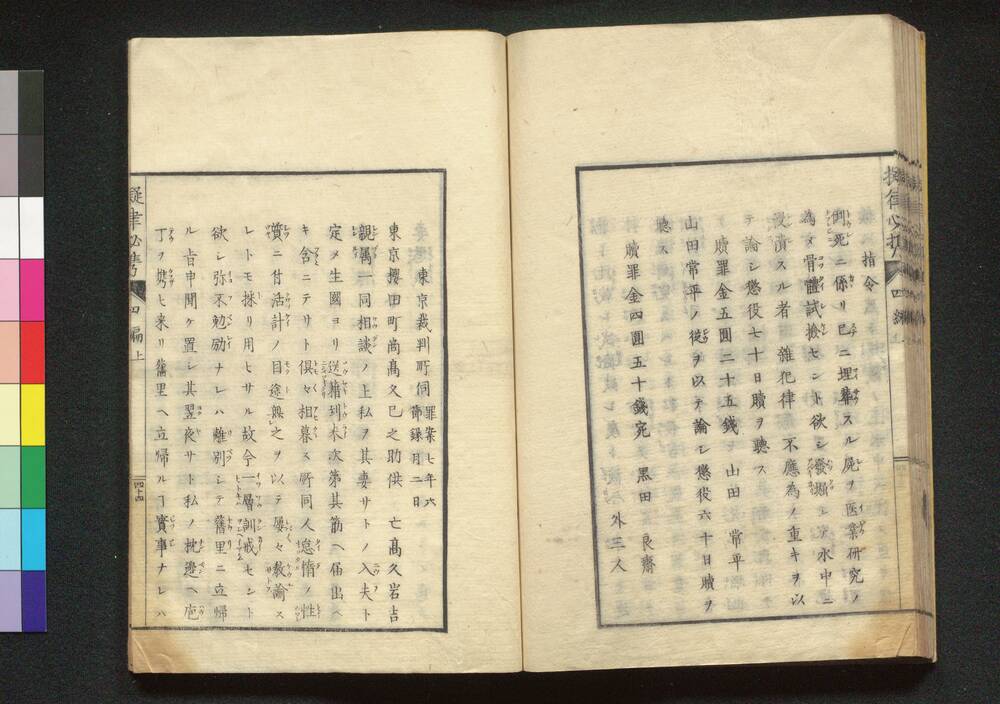 擬律必携 四編
指令
倒死ニ係リ已ニ埋葬スル屍ヲ医業研究ノ
為メ骨體試撿セント欲シ發掘シテ水中ニ
浸漬スル者 雜犯律 不應為ノ重キヲ以
テ論シ懲役七十日贖ヲ聽ス
贖罪金五圓二十五錢ヲ 山田 常平
山田常平ノ從ヲ以テ論シ懲役六十日贖ヲ
聽ス
贖罪金四圓五十錢宛 黒田 良齋 外三人
東京裁判所伺 罪案節錄 七年六月二日
東京櫻田町尚髙久巳之助供 亡髙久岩吉
親属一同相談ノ上私ヲ其妻サトノ入夫ト
定メ生國ヨリ送籍到末次第其筋ヘ届出ヘ
キ含ニテサト倶々相暮ス所同人怠惰ノ性
質ニ付活計ノ目途無之ヲ以テ屢々敎諭ス
レトモ採リ用ヒサル故今一層訓戒セント
欲シ弥不勉励ナレハ離別シテ舊里ニ立帰
ル㫖申聞ケ置シ其翌夜サト私ノ枕邊ヘ庖
丁ヲ携ヒ来リ舊里ヘ立帰ルヿ實事ナレハ
四編上